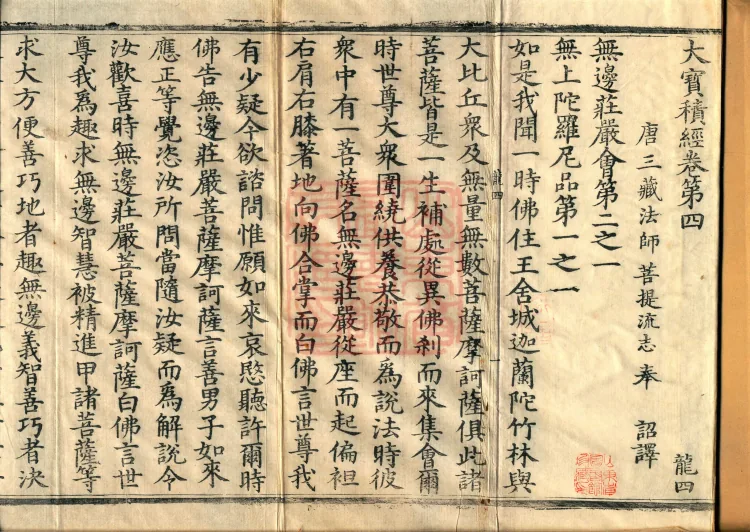 大寶積經卷第四 龍四
唐三藏法師菩提流志奉 詔譯
無邊莊嚴會第二之一
無上陀羅尼品第一之一
如是我聞一時佛住王舍城迦蘭陀竹林與
大比丘衆及無量無數菩薩摩訶薩俱此諸
龍四
菩薩皆是一生補處從異佛刹而來集會爾
時世尊大衆圍繞供養恭敬而爲說法時彼
衆中有一菩薩名無邊莊嚴從座而起偏袒
右肩右膝著地向佛合掌而白佛言世尊我
有少疑今欲諮問惟願如來哀愍聽許爾時
佛告無邊莊嚴菩薩摩訶薩言善男子如來
應正等覺恣汝所問當隨汝疑而爲解說令
汝歡喜時無邊莊嚴菩薩摩訶薩白佛言世
尊我爲趣求無邊智慧被精進甲諸菩薩等
求大方便善巧地者趣無邊義智善巧者決